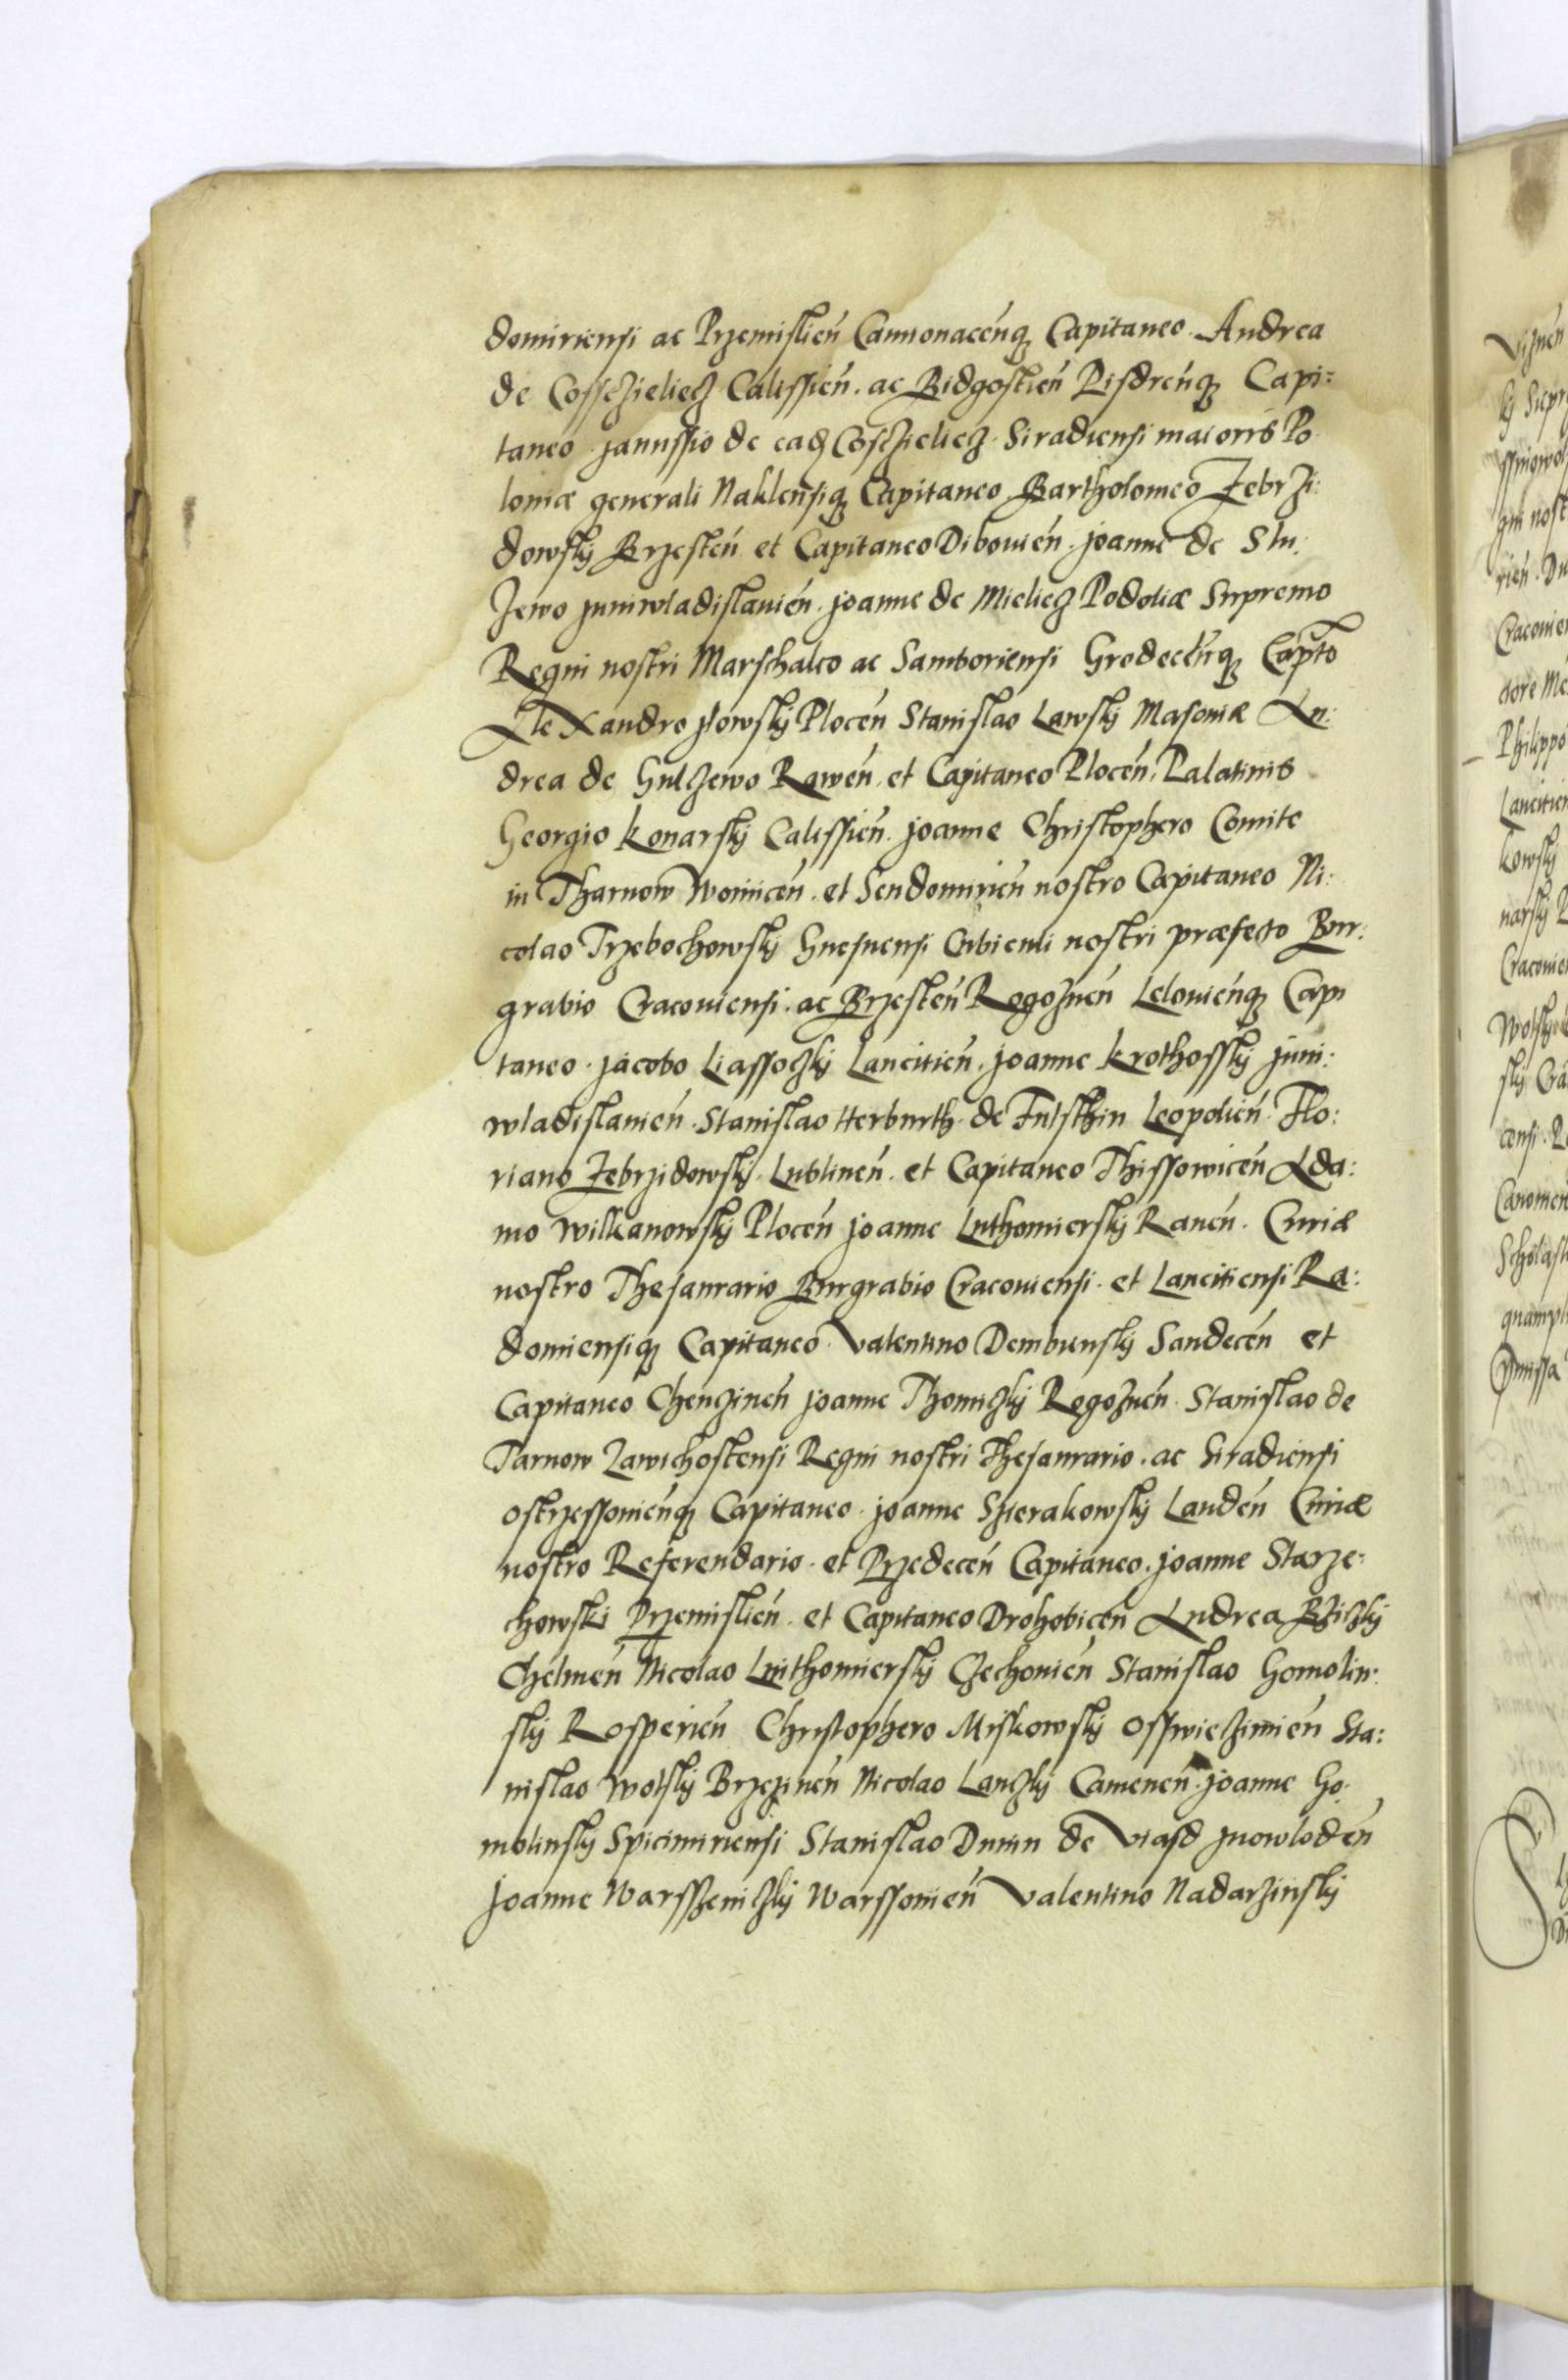 domiriensi ac Przemislien̄ Camionacen̄qȝ Capitaneo. Andrea
de Cosſczieliecz Calissien̄. ac Bidgostien̄ Pisdren̄qȝ Capi:
taneo Janussio de ead Cosczieliecz. Siradiensi maioris Po
loniæ generali Naklensiqȝ Capitaneo Bartholomeo Zebrzi:
dowskij Brzesten̄ et Capitaneo Dibouien̄. Joanne de Slu:
zewo Juniwladislauien̄. Joanne de Mieliecz Podoliæ Supremo
Regni nostri Marschalco ac Samboriensi Grodecen̄qȝ Capto
Alexandro Ilowskij Plocen̄ Stanislao Lawskij Masoniæ An:
drea de Gulczewo Rawen̄. et Capitaneo Plocen̄. Palatinis
Georgio Konarskij Calissien̄. Joanne Christophero Comite
in Tharnow Woiniicen̄. et Sendomirien̄ nostro Capitaneo Ni:
colao Trzebochowskij Gnesnensi Cubiculi nostri præfecto Bur:
grabio Cracouiensi. ac Brzesten̄ Rogoznen̄ Lelouien̄qȝ Capi
taneo. Jacobo Liassoczkij Lancitien̄. Joanne Krothosskij Juni:
wladislauien̄. Stanislao Herburth. de Fulsthin Leopolien̄. Flo:
riano Zebrzidowskij. Lublinen̄. et Capitaneo Thissowicen̄ Ada:
mo Wilkanowskij Plocen̄ Joanne Luthomierskij Rauen̄. Curiæ
nostro Thesaurario Burgrabio Cracouiensi. et Lancitiensi Ra:
domiensiqȝ Capitaneo Valentino Dembienskij Sandecen̄ et
Capitaneo Chenzinen̄ Joanne Thomiczkij Rogoznen̄ Stanislao de
Tarnow Zawichostensi Regni nostri Thesaurario. ac Siradiensi
Ostrzessouien̄qȝ Capitaneo. Joanne Szierakowskij Landen̄ Curiæ
nostro Referendario. et Przedecen̄ Capitaneo. Joanne Starze:
chowski Przemislien̄. et Capitaneo Drohobicen̄ Andrea Bziczkij
Chelmen̄ Nicolao Luithomierskij Czechouien̄ Stanislao Gomolin:
skij Rosperien̄ Christophero Miskowskij Osswieczimien̄ Sta:
nislao Wolskij Brzezinen̄ Nicolao Lanczkij Camenen̄. Joanne Go:
molinskij Spicimiriensi Stanislao Dunin de Viasd Juowloden̄
Joanne Warsszeniczkij Warssouien̄ Valentino Nadarzinskij